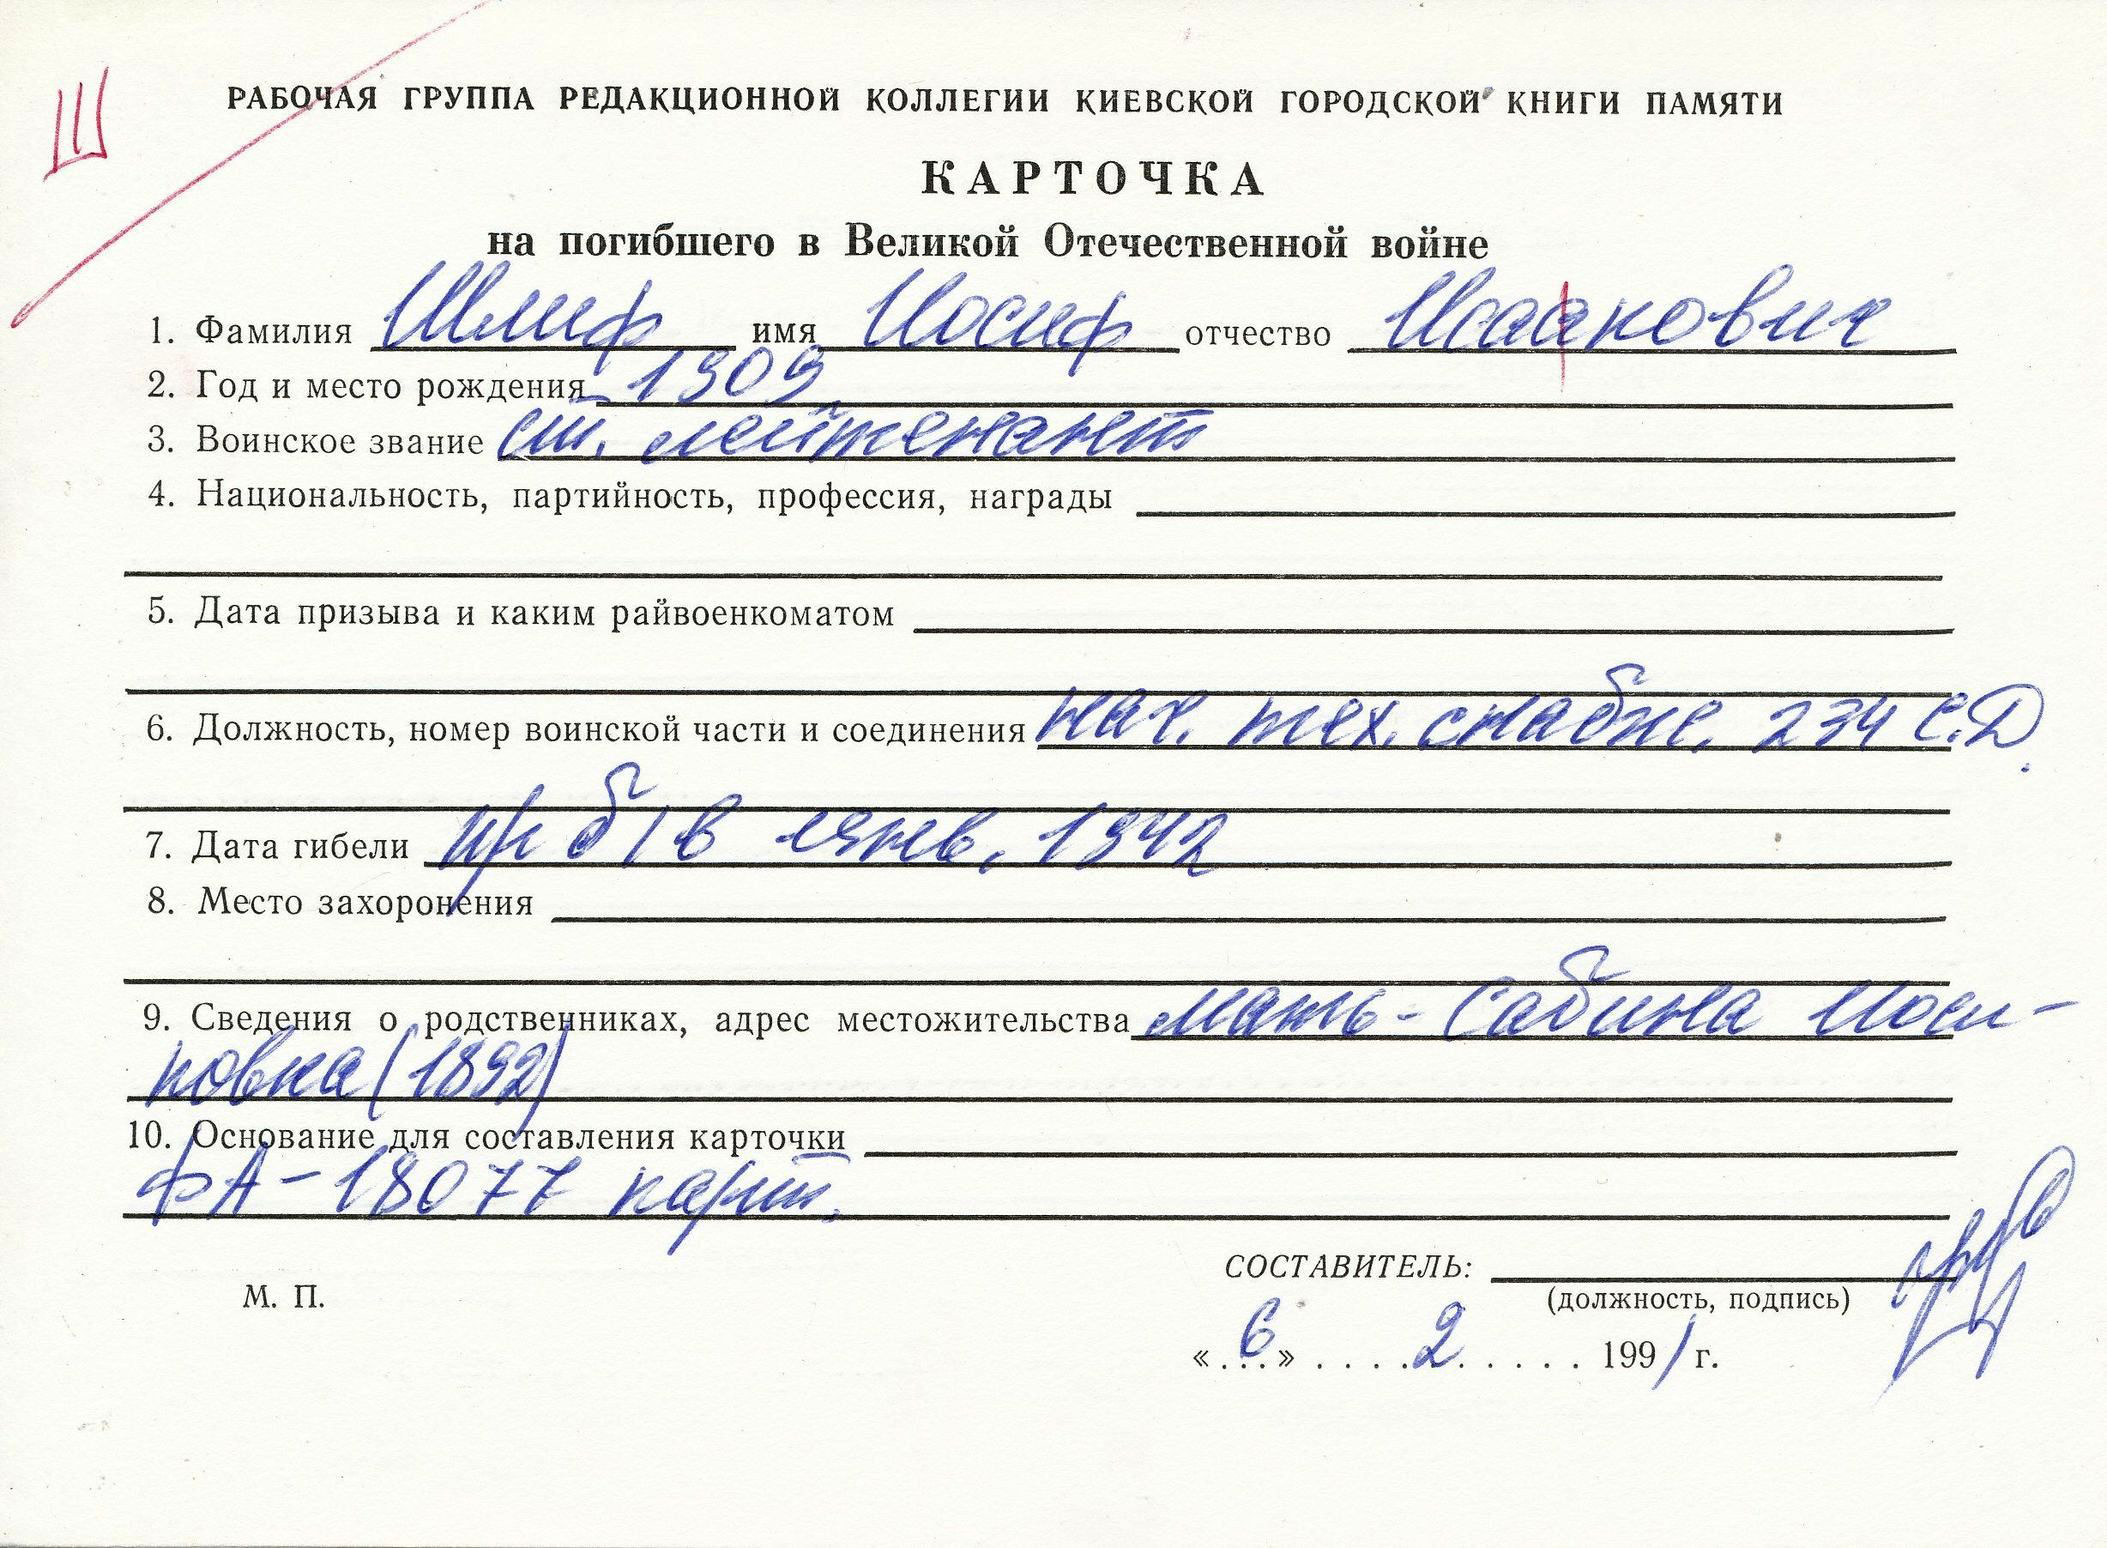 Ш
РАБОЧАЯ ГРУППА РЕДАКЦИОННОЙ КОЛЛЕГИИ КИЕВСКОЙ ГОРОДСКОЙ КНИГИ ПАМЯТИ
КАРТОЧКА
на погибшего в Великой Отечественной войне
1. Фамилия Шлиф имя Иосиф отчество Исаакович
2. Год и место рождения 1909
3. Воинское звание ст. лейтенант
4. Национальность, партийность, профессия, награды
5. Дата призыва и каким райвоенкоматом
6. Должность, номер воинской части и соединения нач. тех. снабже. 234 с.Д.
7. Дата гибели пр б/в янв. 1942
8. Место захоронения
9. Сведения о родственниках, адрес местожительства мать - Сабина Иоси-
повна (1892)
10. Основание для составления карточки
ФА-18077 карт.
СОСТАВИТЕЛЬ:
М. П.
(должность, подпись)
«. 6 .» . . . . 2 . . . . . 1991 г.